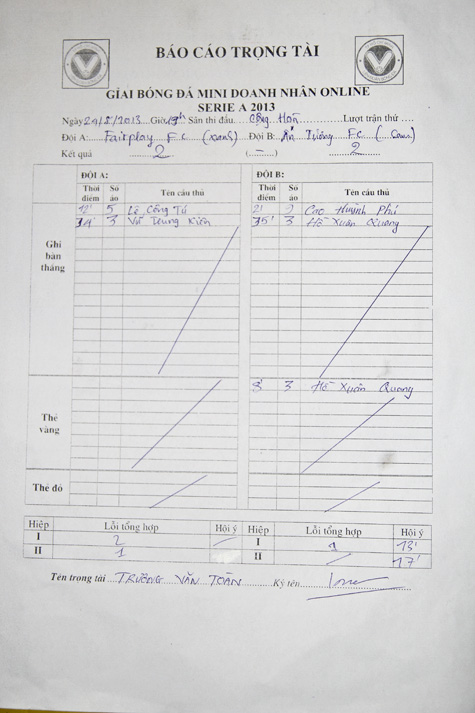 BÁO CÁO TRỌNG TÀI
GIẢI BÓNG ĐÁ MINI DOANH NHÂN ONLINE
SERIE A 2013
Ngày 24/8/2013 Giờ 19h Sân thi đấu. Cộng Hoà Lượt trận thứ ....
Đội A: Fairplay FC (xanh) Đội B: Ấn Tượng FC (Cam)
Kết quả 2 (–) 2
ĐỘI A: ĐỘI B:
Thời điểm Số áo Tên cầu thủ Thời điểm Số áo Tên cầu thủ
Ghi bàn thắng
12' 5 Lê Công Tú 21' 9 Cao Huỳnh Phi
14' 3 Võ Trung Kiên 35' 3 Hồ Xuân Quang
Thẻ vàng
8' 3 Hồ Xuân Quang
Thẻ đỏ
Hiệp Lỗi tổng hợp Hội ý Hiệp Lỗi tổng hợp Hội ý
I 2 I 1 13'
II 1 II 17'
Tên trọng tài TRƯƠNG VĂN TOÀN Ký tên